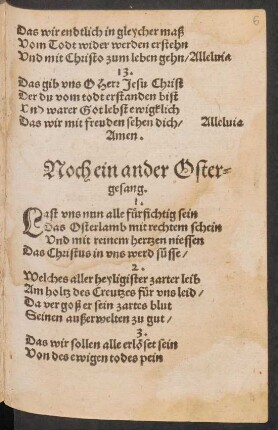 6
Das wir endtlich in gleycher maß
Vom Todt wider werden erstehn
Vnd mit Christo zum leben gehn/Alleluia
13.
Das gib vns O Herr Jesu Christ
Der du vom todt erstanden bist
Vnd warer Got lebst ewigklich
Das wir mit freuden sehen dich/ Alleluia
Amen.
Noch ein ander Oster-
gesang.
1.
Last vns nun alle fürsichtig sein
Das Osterlamb mit rechtem schein
Vnd mit reinem hertzen niessen
Das Christus in vns werd süsse/
2.
Welches aller heyligister zarter leib
Am holtz des Creutzes für vns leid/
Da vergoß er sein zartes blut
Seinen außerwelten zu gut/
3.
Das wir sollen alle erlöset sein
Von des ewigen todes pein